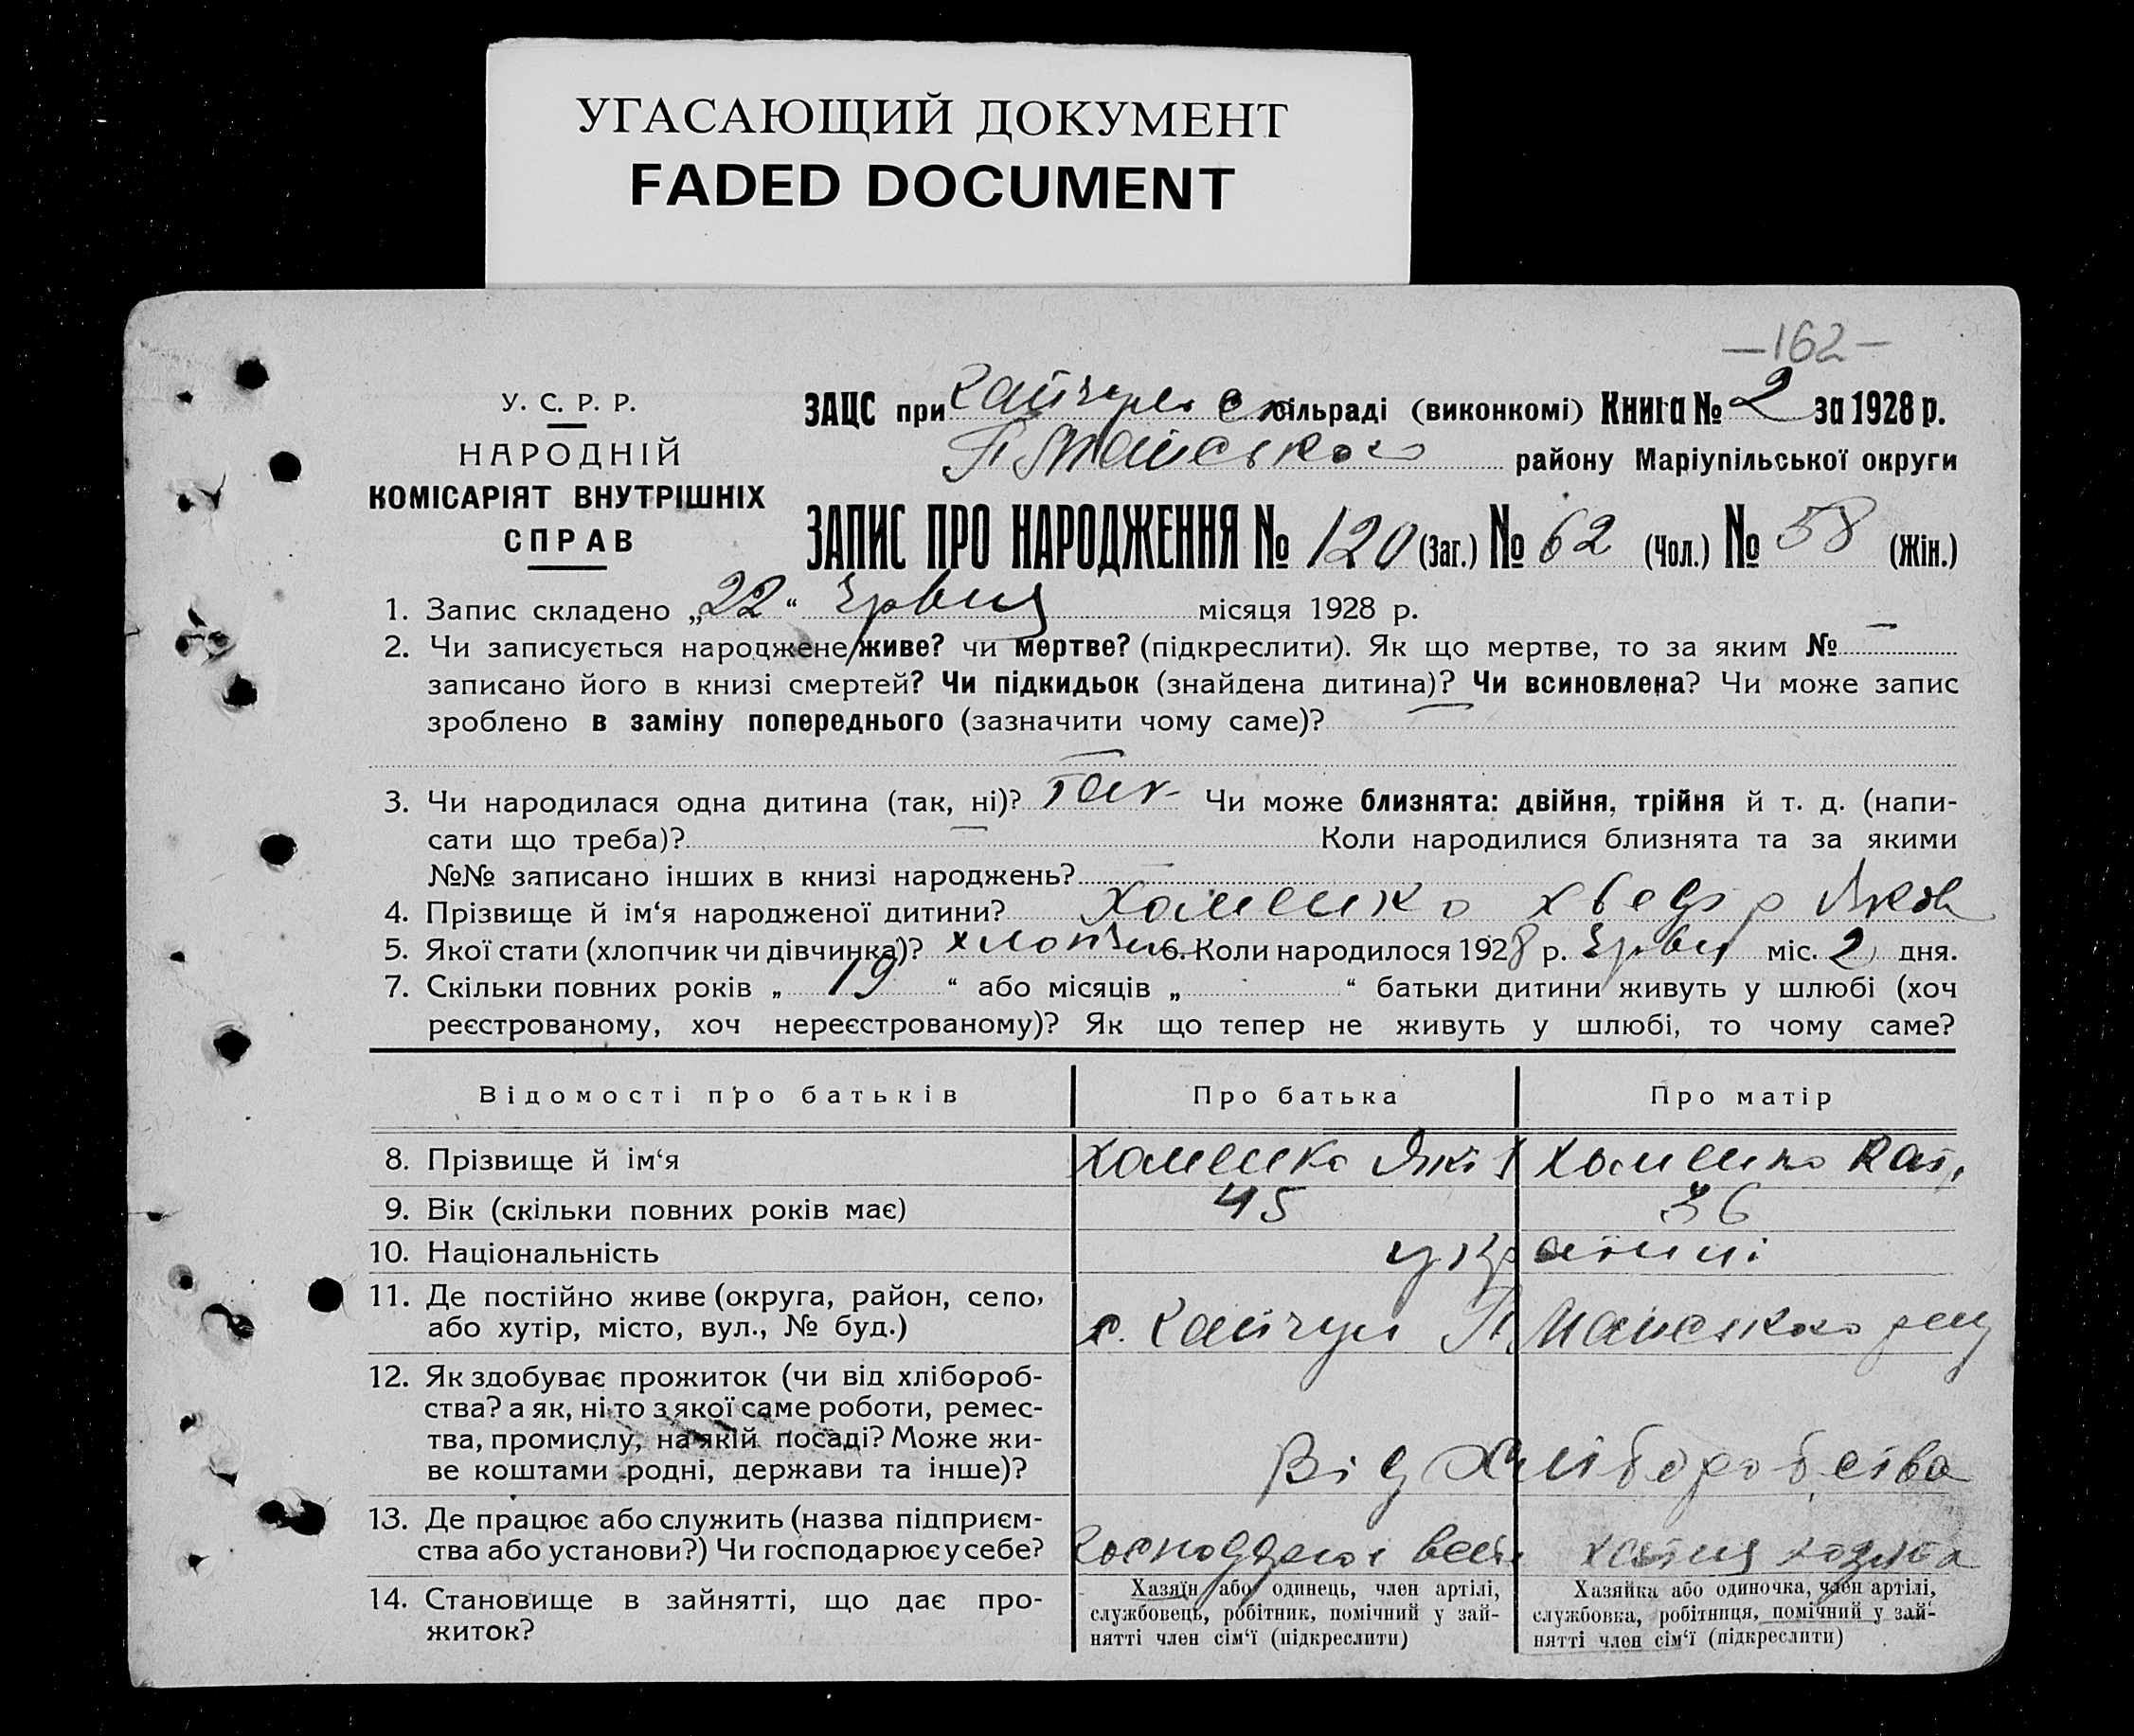 УГАСАЮЩИЙ ДОКУМЕНТ
FADED DOCUMENT
—162—
У. С. Р. Р.
НАРОДНІЙ
КОМІСАРІЯТ ВНУТРІШНІХ
СПРАВ
ЗАЦС при Кайчул сільраді (виконкомі) Книга № 2 за 1928 р.
району Маріупільської округи
ЗАПИС ПРО НАРОДЖЕННЯ № 120 (Заг.) № 62 (Чол.) № 58 (Жін.)
1. Запис складено „22“ Червня місяця 1928 р.
2. Чи записується народжене живе? чи мертве? (підкреслити). Як що мертве, то за яким № —
записано його в книзі смертей? Чи підкидьок (знайдена дитина)? Чи всиновлена? Чи може запис
зроблено в заміну попереднього (зазначити чому саме)? —
3. Чи народилася одна дитина (так, ні)? так Чи може близнята: двійня, трійня й т. д. (напи-
сати що треба)? — Коли народилися близнята та за якими
№№ записано інших в книзі народжень? —
4. Прізвище й ім‘я народженої дитини? Хоменко Хведір Яков
5. Якої стати (хлопчик чи дівчинка)? хлопчик 6. Коли народилося 1928 р. Черв міс. 2 дня.
7. Скільки повних років „ 19 “ або місяців „ “ батьки дитини живуть у шлюбі (хоч
реєстрованому, хоч нереєстрованому)? Як що тепер не живуть у шлюбі, то чому саме?
Відомості про батьків Про батька Про матір
8. Прізвище й ім‘я Хоменко Яків Хоменко Кат.
9. Вік (скільки повних років має) 45 36
10. Національність українці
11. Де постійно живе (округа, район, село,
або хутір, місто, вул., № буд.) с. Кайчул П.
12. Як здобуває прожиток (чи від хлібороб-
ства? а як, ні то з якої саме роботи, ремес-
тва, промислу, на якій посаді? Може жи-
ве коштами родні, держави та інше)? Від Хліборобства
13. Де працює або служить (назва підприєм-
ства або установи?) Чи господарює у себе?
14. Становище в зайнятті, що дає про-
житок?
Хазяїн або одинець, член артілі,
службовець, робітник, помічний у зай-
нятті член сім‘ї (підкреслити)
Хазяйка або одиночка, член артілі,
службовка, робітниця, помічний у зай-
нятті член сім‘ї (підкреслити)